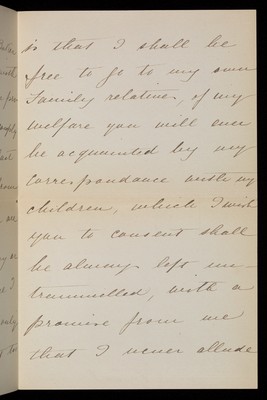 is that I shall be
free to go to my own
Family relatives, of my
welfare you will ever
be acquainted by my
correspondance with my
children, which I wish
you to consent shall
be always left un-
trammelled, with a
promise from me
that I never allude